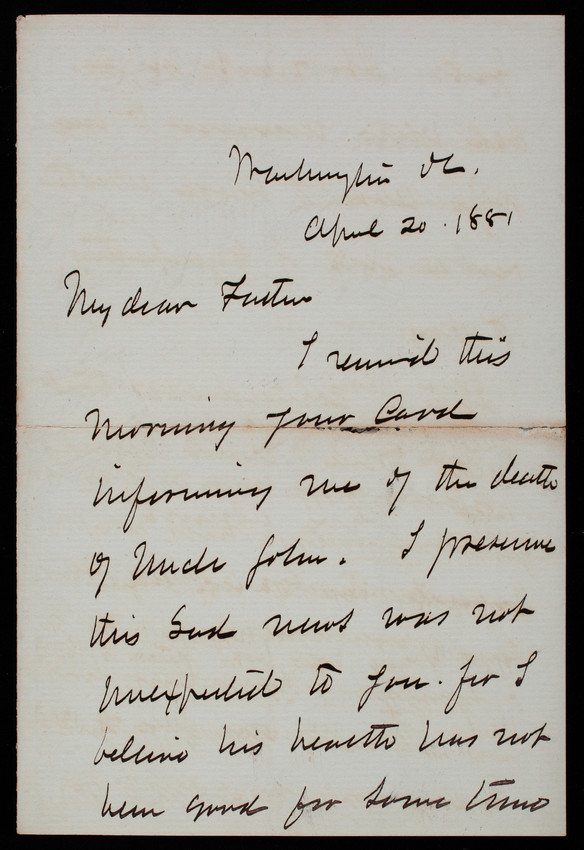 Washington DC.
April 20. 1881
My dear Father
I received this
morning your Card
informing me of the death
of Uncle John. I presume
this sad news was not
unexpected to you. for I
believe his health has not
been good for some time